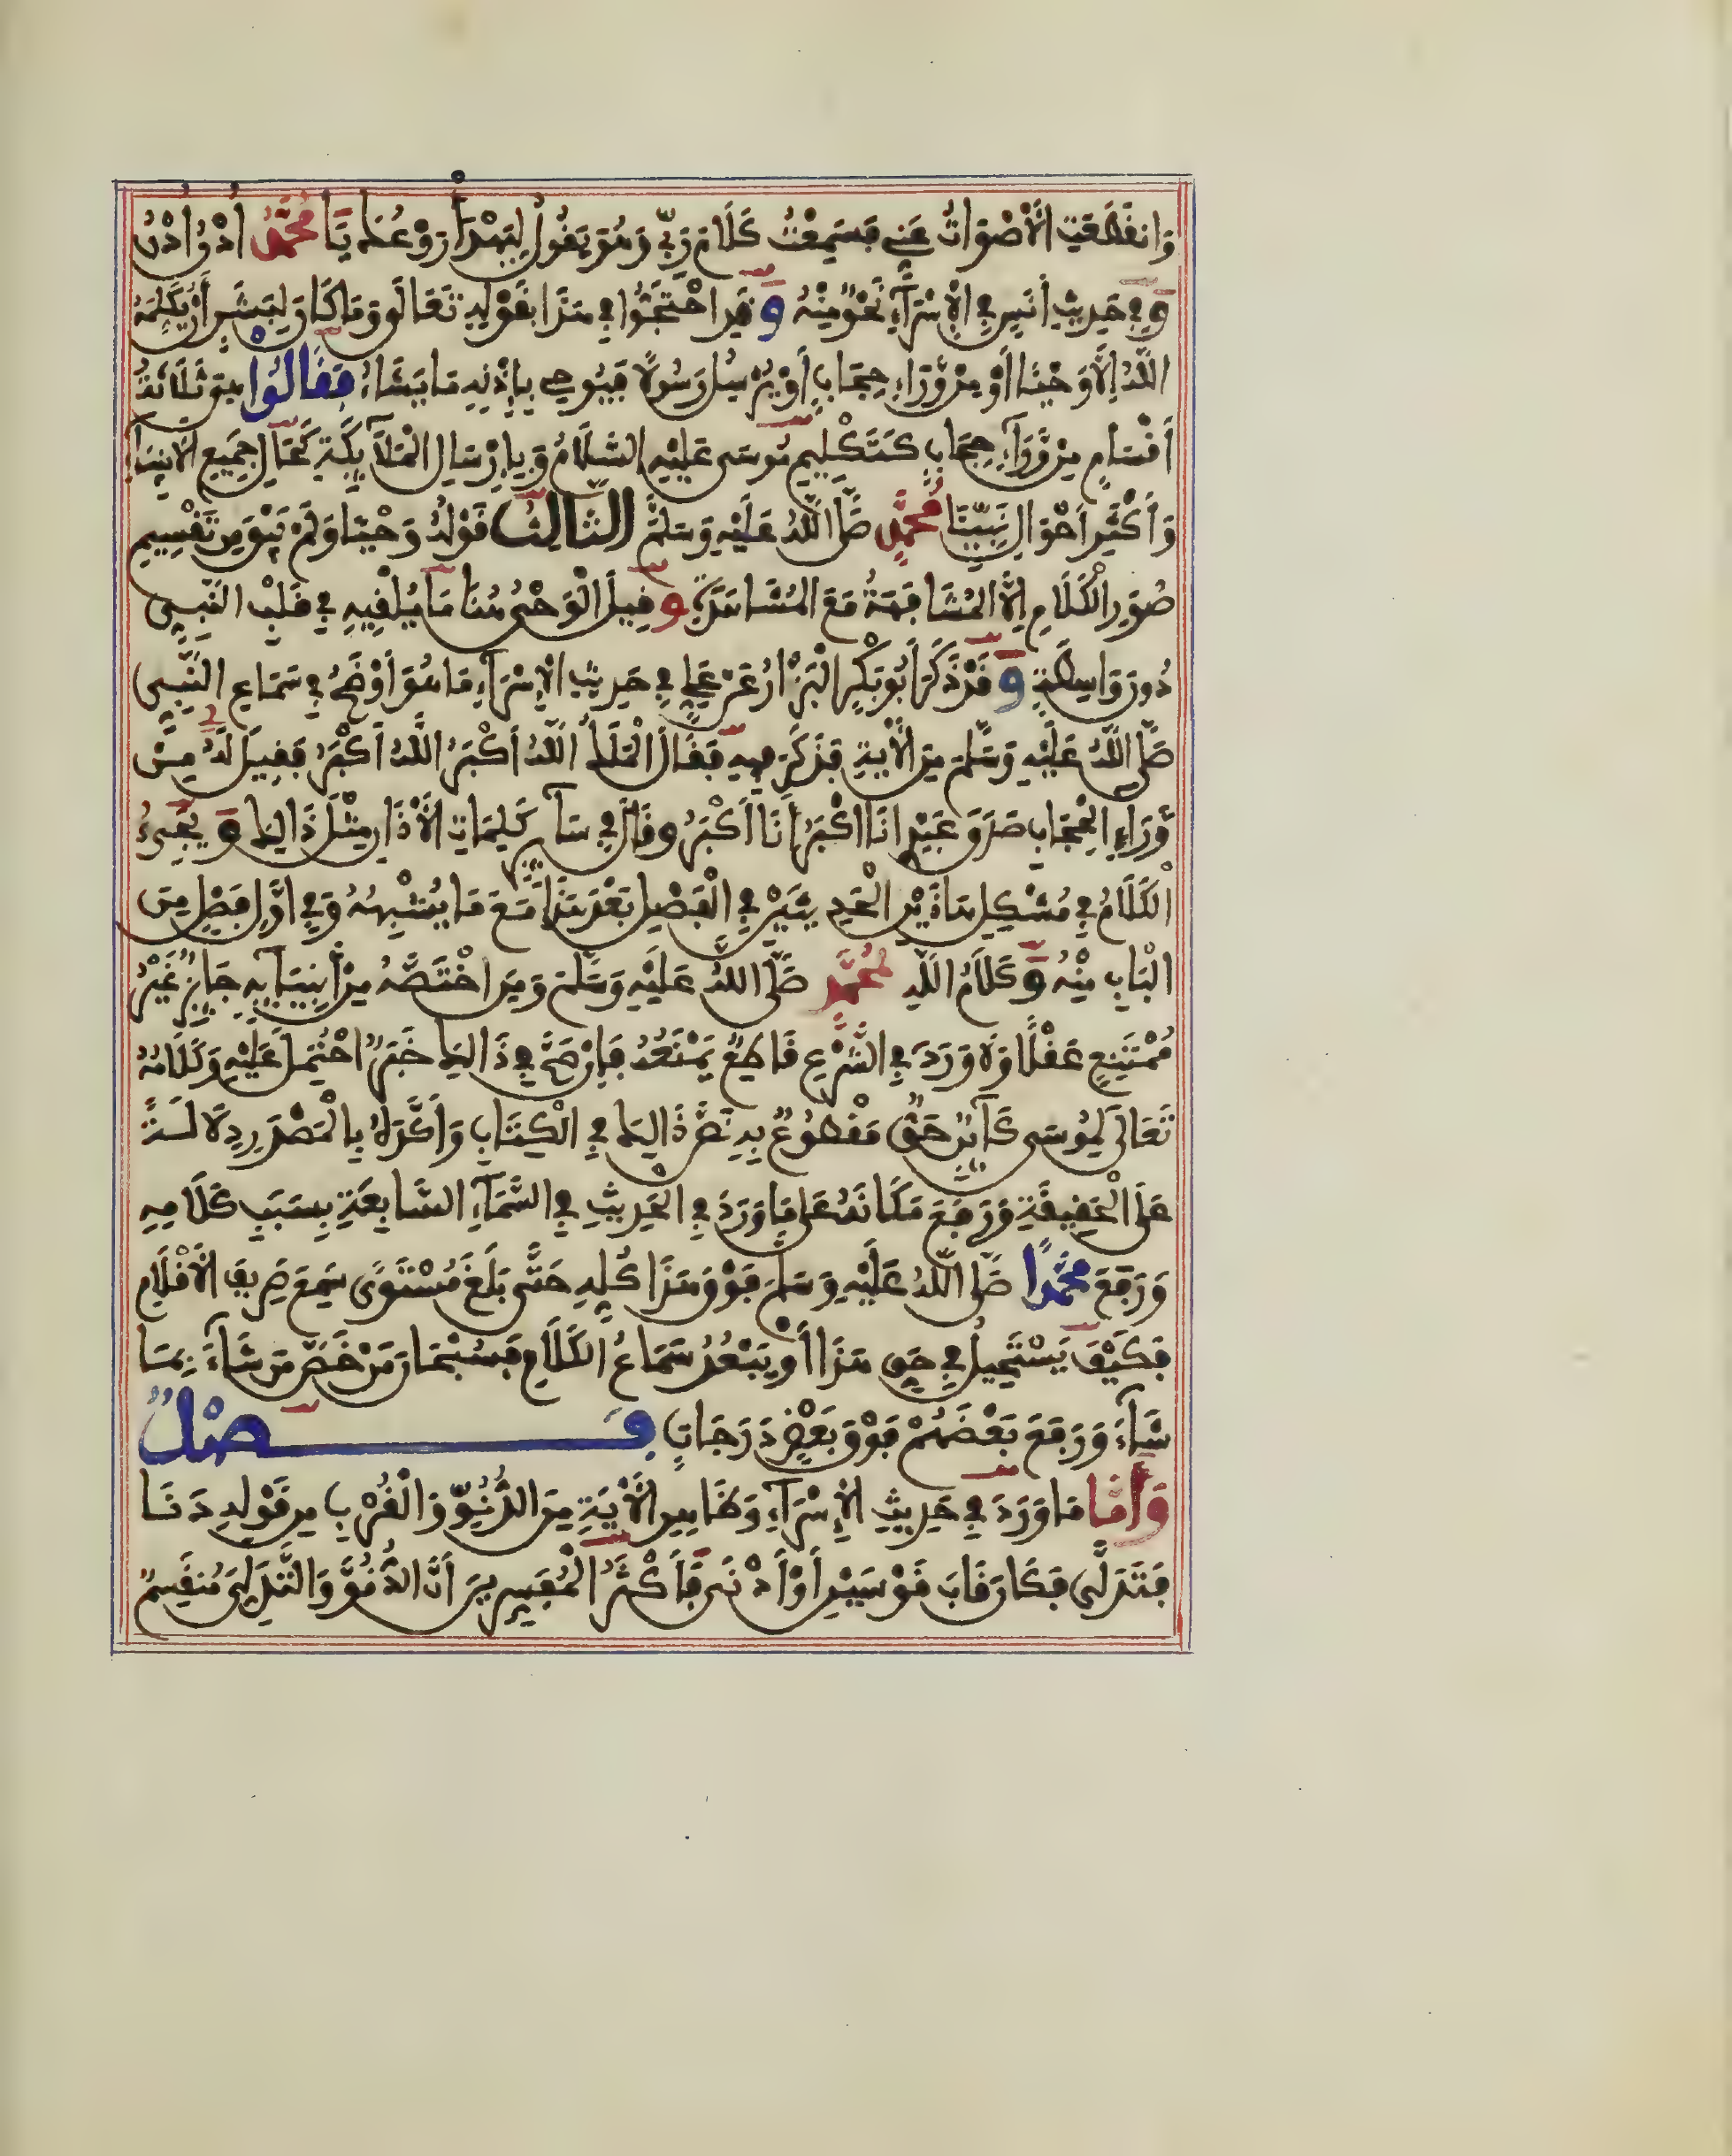 وَانقَطَعَتِ الْأَصْوَاتُ عَنِّي فَسَمِعْتُ كَلَامَ رَبِّي وَهُوَ يَقُولُ لِيَهْدَأْ رَوْعُكَ يَا مُحَمَّدُ ادْنُ ادْنُ
وَفِي حَدِيثِ أَنَسٍ فِي الْإِسْرَآءِ نَحْوٌ مِنْهُ وَقَدِ احْتَجُّوا فِي هَذَا بِقَوْلِهِ تَعَالَى وَمَا كَانَ لِبَشَرٍ أَنْ يُكَلِّمَهُ
اللَّهُ إِلَّا وَحْيًا أَوْ مِنْ وَّرَاءِ حِجَابٍ أَوْ يُرْسِلُ رَسُولًا فَيُوحِي بِإِذْنِهِ مَا يَشَاءُ فَقَالُوا هِيَ ثَلَاثَةُ
أَقْسَامٍ مِنْ وَّرَآءِ حِجَابٍ كَتَكْلِيمِ مُوسَى عَلَيْهِ السَّلَامُ وَبِإِرْسَالِ الْمَلَآئِكَةِ كَحَالِ جَمِيعِ الْأَنْبِيَآءِ
وَأَكْثَرِ أَحْوَالِ نَبِيِّنَا مُحَمَّدٍ صَلَّى اللَّهُ عَلَيْهِ وَسَلَّمَ الثَّالِثُ قَوْلُهُ وَحْيًا وَلَمْ يَبْقَ مِنْ تَقْسِيمِ
صُوَرِ الْكَلَامِ إِلَّا الْمُشَافَهَةُ مَعَ الْمُشَاهَدَةِ وَقِيلَ الْوَحْيُ هُنَا مَا يُلْقِيهِ فِي قَلْبِ النَّبِيءِ
دُونَ وَاسِطَةٍ وَقَدْ ذَكَرَ أَبُو بَكْرٍ الْبَزَّارُ عَنْ عَلِيٍّ فِي حَدِيثِ الْإِسْرَآءِ مَا هُوَ أَوْضَحُ فِي سَمَاعِ النَّبِيءِ
صَلَّى اللَّهُ عَلَيْهِ وَسَلَّمَ مِنَ الْآيَةِ فَذَكَرَ فِيهِ فَقَالَ الْمَلَكُ اللَّهُ أَكْبَرُ اللَّهُ أَكْبَرُ فَقِيلَ لَهُ مِنْ
وَّرَاءِ الْحِجَابِ صَدَقَ عَبْدِي أَنَا أَكْبَرُ أَنَا أَكْبَرُ وَقَالَ فِي سَآئِرِ كَلِمَاتِ الْأَذَانِ مِثْلَ ذَالِكَ وَيَجِيءُ
الْكَلَامُ فِي مُشْكِلِ هَاذَيْنِ الْحَدِيثَيْنِ فِي الْفَصْلِ بَعْدَ هَذَا مَعَ مَا يُشْبِهُهُ وَفِي أَوَّلِ فَصْلٍ مِنَ
الْبَابِ مِنْهُ وَكَلَامُ اللَّهِ لِمُحَمَّدٍ صَلَّى اللَّهُ عَلَيْهِ وَسَلَّمَ وَمَنِ اخْتَصَّهُ مِنْ أَنبِيَآئِهِ جَائِزٌ غَيْرُ
مُمْتَنِعٍ عَقْلًا وَلَا وَرَدَ فِي الشَّرْعِ قَاطِعٌ يَمْنَعُهُ فَإِنْ صَحَّ فِي ذَالِكَ خَبَرٌ احْتُمِلَ عَلَيْهِ وَكَلَامُهُ
تَعَالَى لِمُوسَى كَآئِنٌ حَقٌّ مَقْطُوعٌ بِهِ نَصَّ ذَالِكَ فِي الْكِتَابِ وَأَكَّدَهُ بِالْمَصْدَرِ دِلَالَةً
عَلَى الْحَقِيقَةِ وَرَفَعَ مَكَانَهُ عَلَى مَا وَرَدَ فِي الْحَدِيثِ فِي السَّمَآءِ السَّابِعَةِ بِسَبَبِ كَلَامِهِ
وَرَفَعَ مُحَمَّدًا صَلَّى اللَّهُ عَلَيْهِ وَسَلَّمَ فَوْقَ هَذَا كُلِّهِ حَتَّى بَلَغَ مُسْتَوًى سَمِعَ صَرِيفَ الْأَقْلَامِ
فَكَيْفَ يَسْتَحِيلُ فِي حَقِّ هَذَا أَوْ يَبْعُدُ سَمَاعُ الْكَلَامِ فَسُبْحَانَ مَنْ خَصَّ مَنْ شَآءَ بِمَا
شَآءَ وَرَفَعَ بَعْضَهُمْ فَوْقَ بَعْضٍ دَرَجَاتٍ فَصْلٌ
وَأَمَّا مَا وَرَدَ فِي حَدِيثِ الْإِسْرَآءِ وَظَاهِرِ الْآيَةِ مِنَ الدُّنُوِّ وَالْقُرْبِ مِنْ قَوْلِهِ دَنَا
فَتَدَلَّى فَكَانَ قَابَ قَوْسَيْنِ أَوْ أَدْنَى فَأَكْثَرُ الْمُفَسِّرِينَ أَنَّ الدُّنُوَّ وَالتَّدَلِّيَ مُنقَسِمٌ